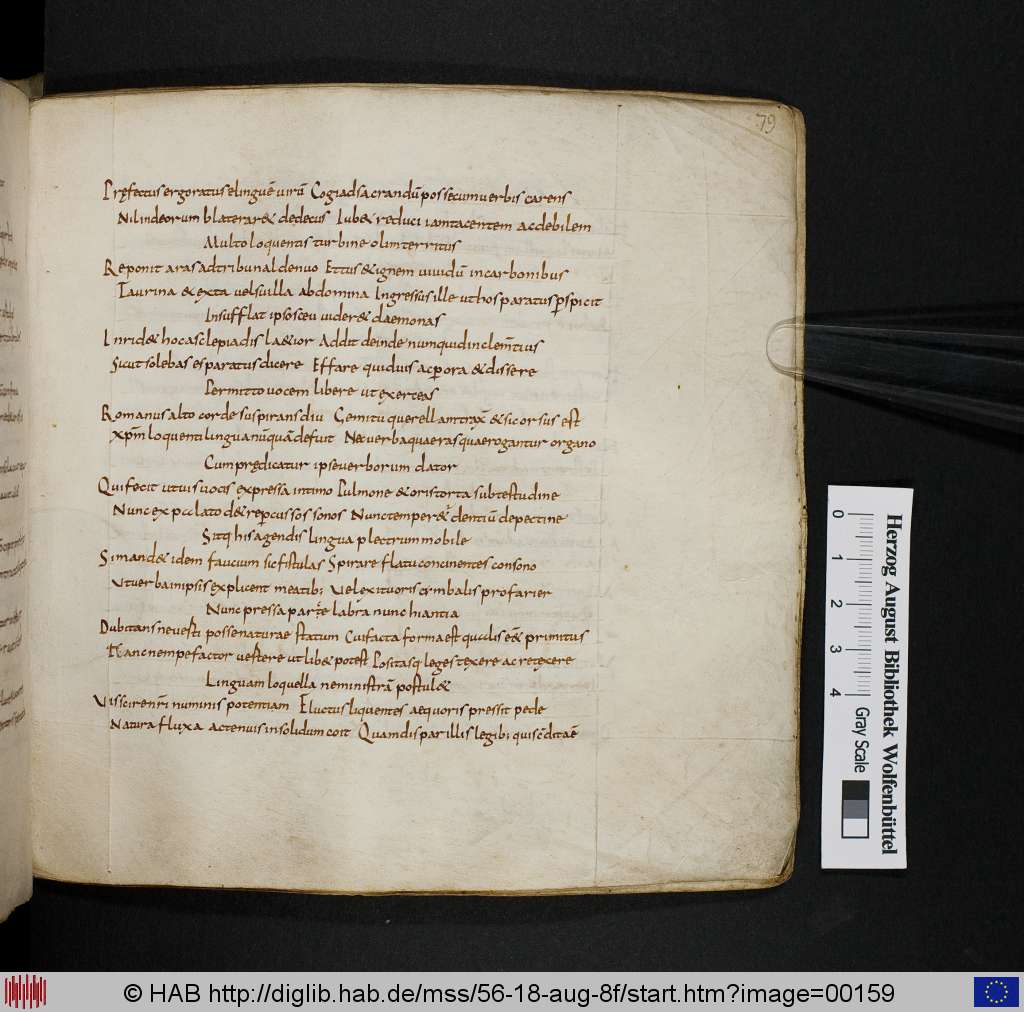 79
Pręfectus ergo ratus elinguē uirū Cogi ad sacrandū pos secum uerbis carens
Nil in deorum blaterar& dedecus Iub& reduci iam tacentem ac debilem
Multo loquentis turbine olim territus
Reponit aras ad tribunal denuo Et tus & ignem uiuidū in carbonibus
Taurina & exta uel suilla abdomina Ingressus ille ut hos paratus perspicit
Insufflat ipsos ceu uider& daemonas
Inrid& hoc asclepiadis laetior Addit deinde numquid inclemtius
Sicut solebas es paratus dicere Effare quiduis ac perora & dissere
Permitto uocem libere ut exerceas
Romanus alto corde suspirans diu Gemitu querellam & sic orsus est
Xpm loquenti lingua nūquā defuit Nec uerba quaeras quae rogantur organo
Cum prędicatur ipse uerborum dator
Qui fecit ut uis uocis expressa intimo Pulmone & oris torta sub testudine
Nunc ex palato d& repercussos sonos Nunc temper& dentiū de pectine
Sitq his agendis lingua plectrum mobile
Si mand& idem faucium sic fistulas Spirare flatu concinentes consono
Ut uerba in ipsis explicent meatib; Uel ex ituoris cymbalis profarier
Nunc pressa labra nunc hiantia
Dubitans ne uesti posse naturae statum Cui facta forma est qualis primitus
Hanc nempe factor uestere ut lib& potest Positasq leges texere ac retexere
Linguam loquella ne ministrā postul&
Vis scire nri numinis potentiam Fluctus liquentes aequoris pressit pede
Natura fluxa ac tenuis in solidum coit Quam dispar illis legib;
Herzog August Bibliothek Wolfenbüttel
0 1 2 3 4
Gray Scale
© HAB http://diglib.hab.de/mss/56-18-aug-8f/start.htm?image=00159